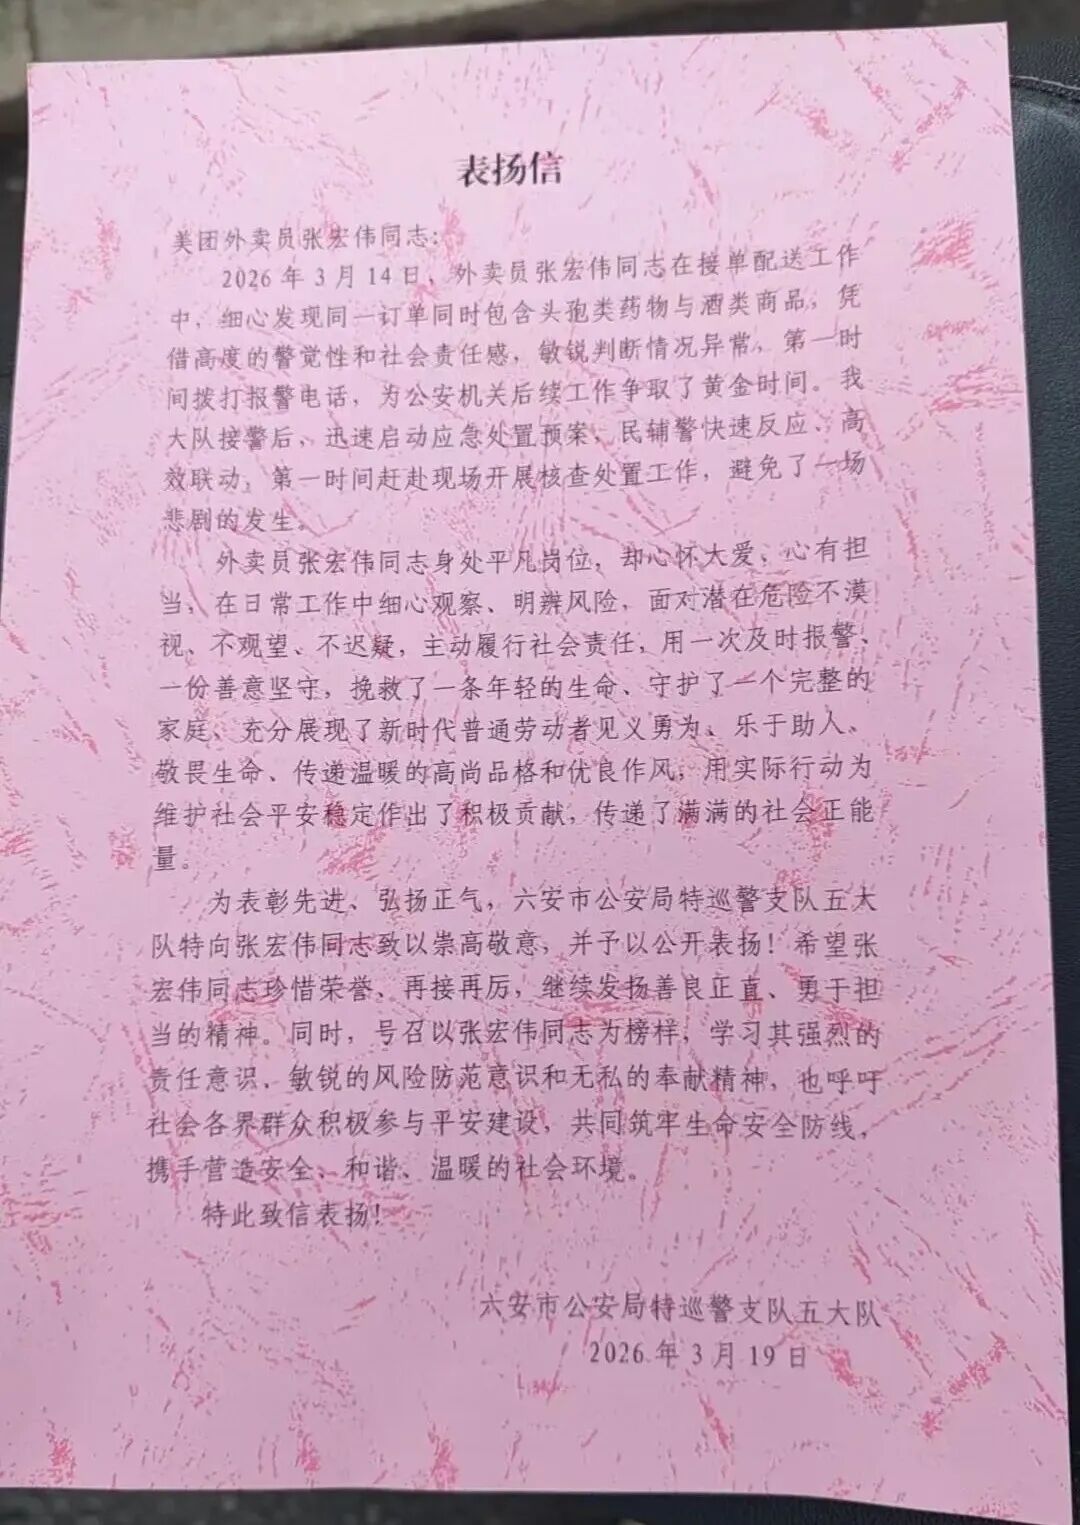 表扬信
美团外卖员张宏伟同志：
2026年3月14日，外卖员张宏伟同志在接单配送工作
中，细心发现同一订单同时包含头孢类药物与酒类商品，凭
借高度的警觉性和社会责任感，敏锐判断情况异常，第一时
间拨打报警电话，为公安机关后续工作争取了黄金时间。我
大队接警后，迅速启动应急处置预案，民辅警快速反应、高
效联动，第一时间赶赴现场开展核查处置工作，避免了一场
悲剧的发生。
外卖员张宏伟同志身处平凡岗位，却心怀大爱，心有担
当，在日常工作中细心观察、明辨风险，面对潜在危险不漠
视、不观望、不迟疑，主动履行社会责任，用一次及时报警、
一份善意坚守，挽救了一条年轻的生命、守护了一个完整的
家庭，充分展现了新时代普通劳动者见义勇为、乐于助人、
敬畏生命、传递温暖的高尚品格和优良作风，用实际行动为
维护社会平安稳定作出了积极贡献，传递了满满的社会正能
量。
为表彰先进、弘扬正气，六安市公安局特巡警支队五大
队特向张宏伟同志致以崇高敬意，并予以公开表扬！希望张
宏伟同志珍惜荣誉、再接再厉，继续发扬善良正直、勇于担
当的精神。同时，号召以张宏伟同志为榜样，学习其强烈的
责任意识、敏锐的风险防范意识和无私的奉献精神，也呼吁
社会各界群众积极参与平安建设，共同筑牢生命安全防线，
携手营造安全、和谐、温暖的社会环境。
特此致信表扬！
六安市公安局特巡警支队五大队
2026年3月19日